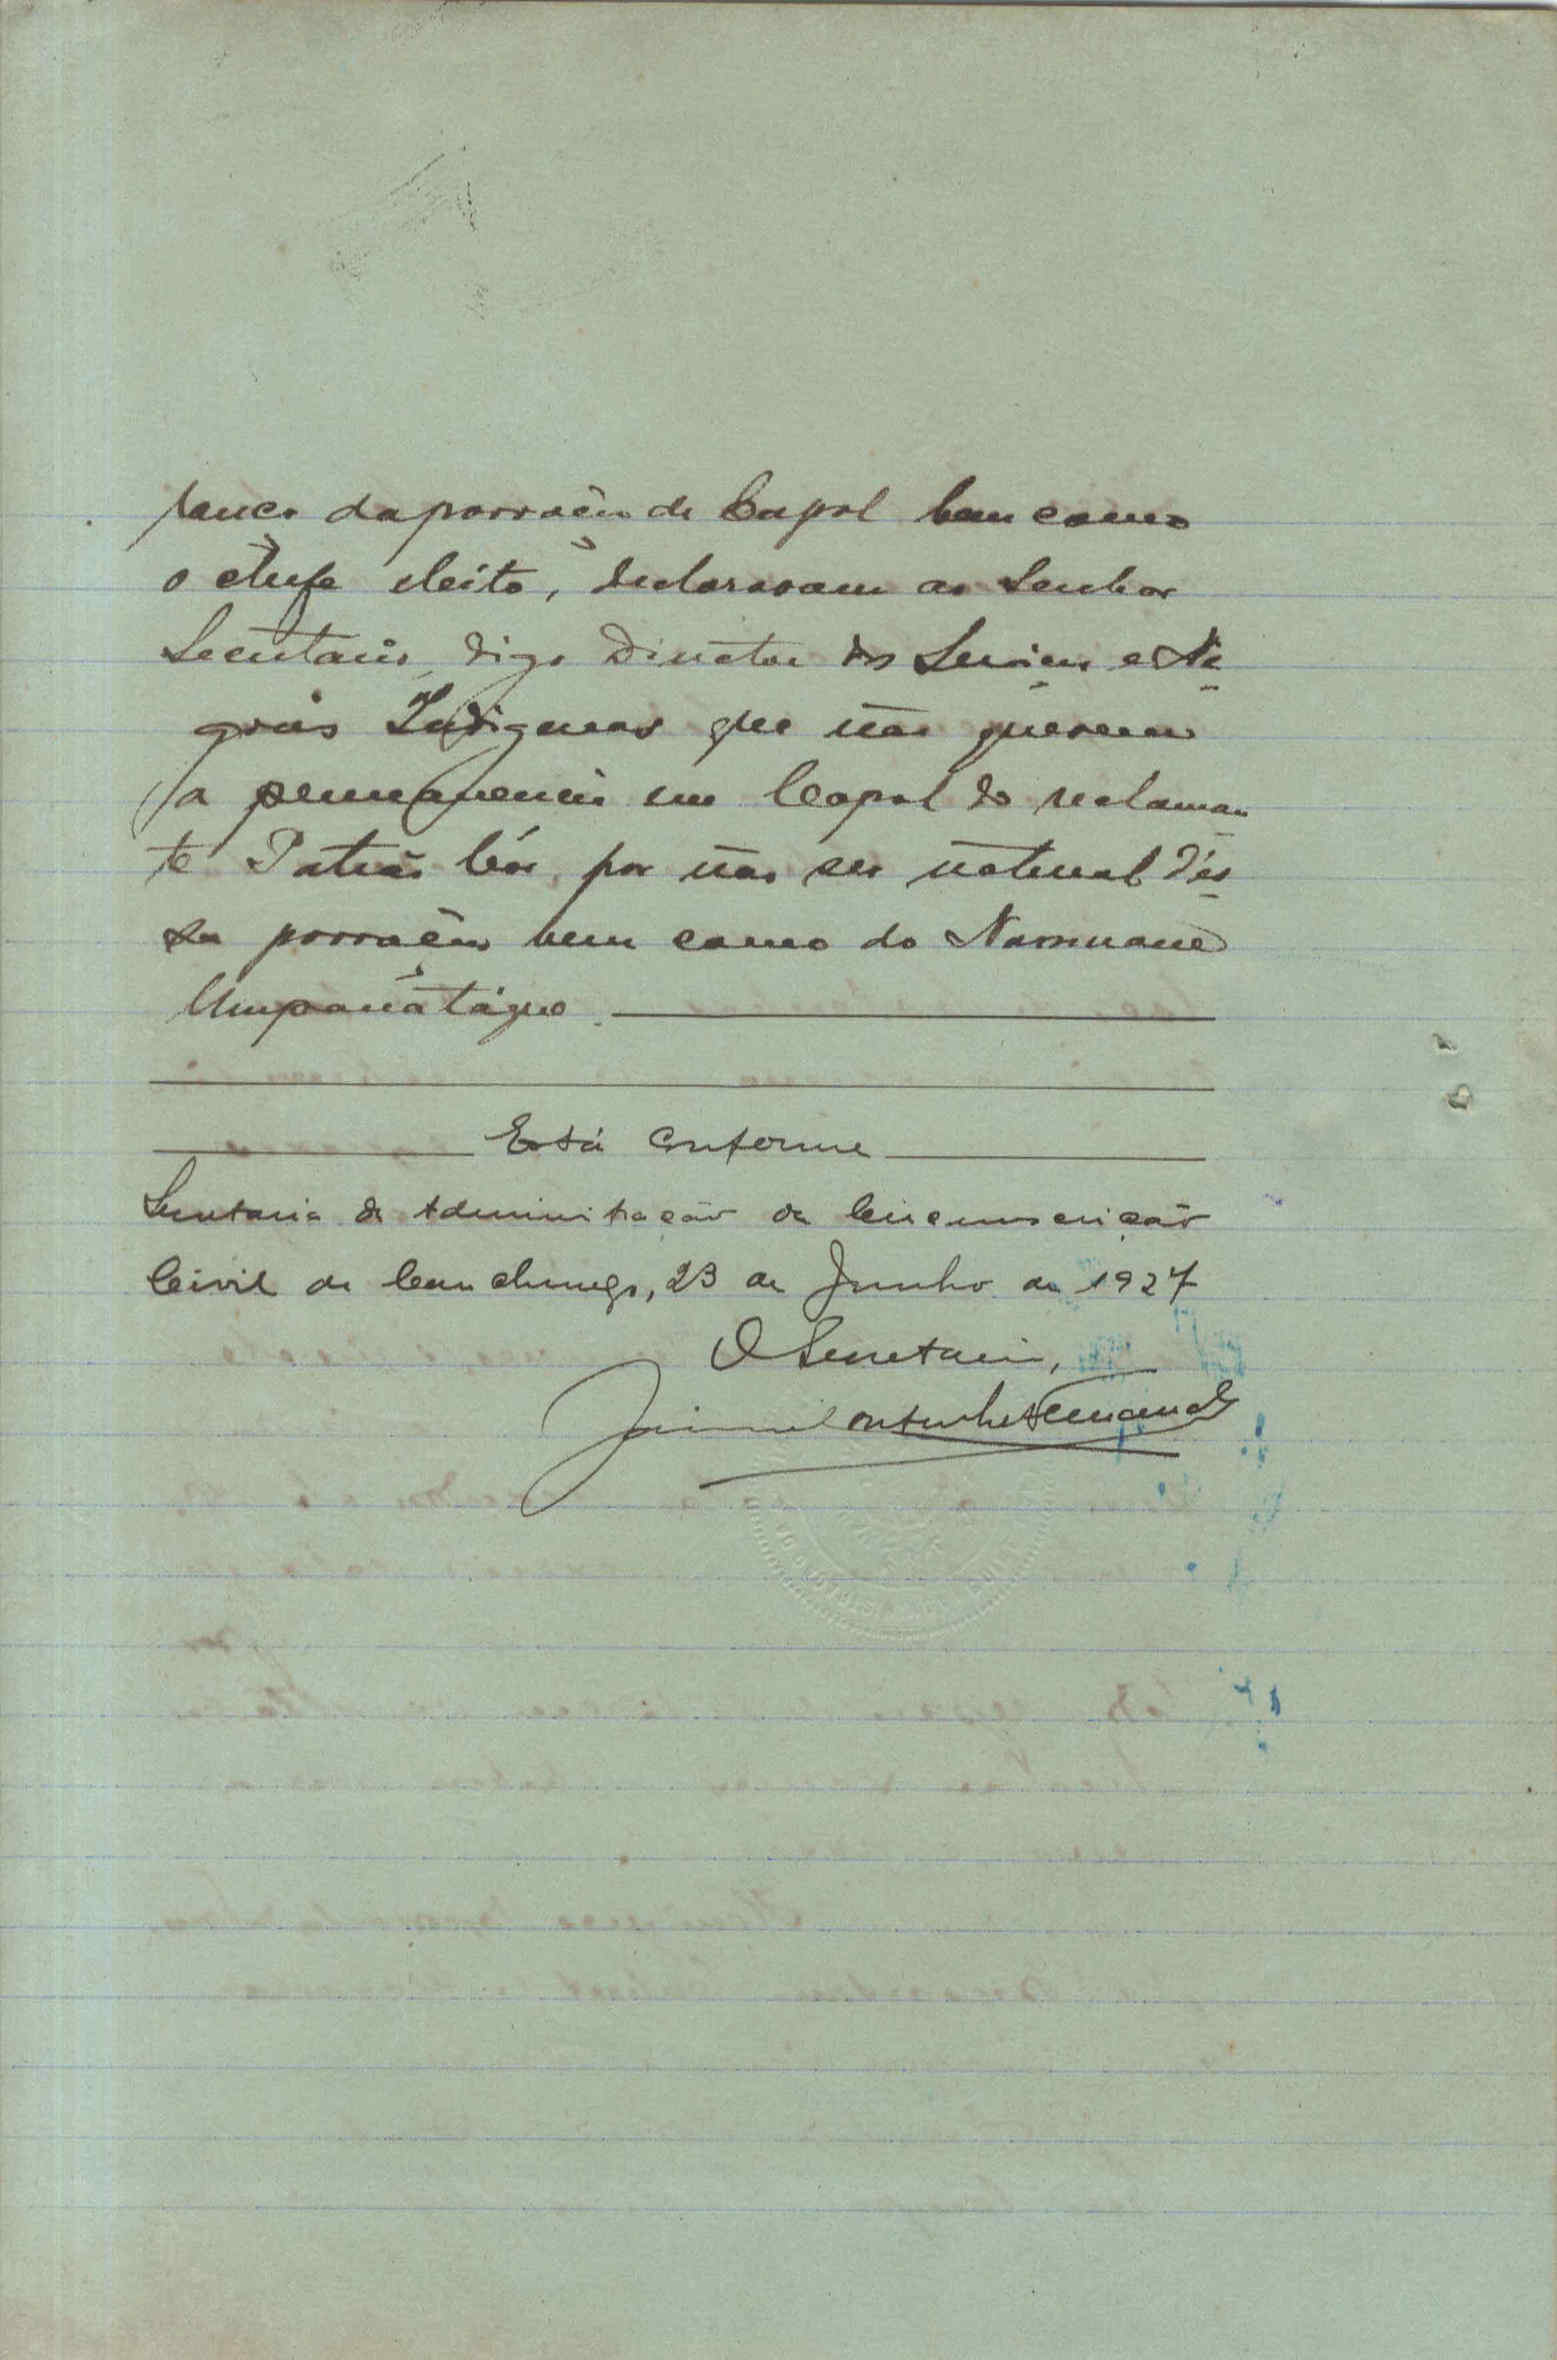 da povoação de Capol bem como
o chefe eleito, declaravam ao Senhor
Secretario, digo Director dos Serviços e Ne
gocios Indigenas que não querem
a permanencia em Capol do reclaman
te Patrão Có, por não ser natural dés
sa povoação bem como do Namuane
Umpanatáque
Está conforme
Secretaria da Administração da Circumscrição
Civil de Canchungo, 23 de Junho de 1927
O Secretario,